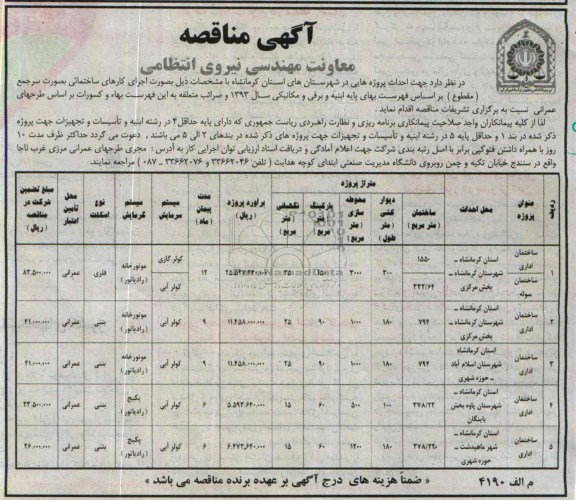 آگهی مناقصه
معاونت مهندسی نیروی انتظامی
در نظر دارد جهت احداث پروژه هایی در شهرستان های استان کرمانشاه با مشخصات ذیل بصورت اجرای کارهای ساختمانی بصورت سرجمع
( مقطوع ) بر اساس فهرست بهای پایه ابنیه و برقی و مکانیکی سال ۱۳۹۳ و ضرائب متعلقه به این فهرست بهاء و کسورات بر اساس طرحهای
عمرانی نسبت به برگزاری تشریفات مناقصه اقدام نماید .
لذا از کلیه پیمانکاران واجد صلاحیت پیمانکاری برنامه ریزی و نظارت راهبردی ریاست جمهوری که دارای پایه حداقل ۴ در رشته ابنیه و تأسیسات و تجهیزات جهت پروژه
ذکر شده در بند ۱ و حداقل پایه ۵ در رشته ابنیه و تأسیسات و تجهیزات جهت پروژه های ذکر شده در بندهای ۲ الی ۵ می باشند , دعوت می گردد حداکثر ظرف مدت ۱۰
روز با همراه داشتن فتوکپی برابر با اصل رتبه بندی شرکت جهت اعلام آمادگی و دریافت اسناد ارزیابی توان اجرایی کار به آدرس : مجری طرحهای عمرانی مرزی غرب ناجا
واقع در سنندج خیابان تکیه و چمن روبروی دانشگاه مدیریت صنعتی ابتدای کوچه هدایت ( تلفن ۳۳۶۶۲۰۴۶ و ۳۳۶۶۲۰۷۶ – ۰۸۷ ) مراجعه نمایند.
ردیف عنوان پروژه محل احداث متراژ پروژه ساختمان ( متر مربع ) دیوار کشی ( متر طول ) محوطه سازی ( متر مربع ) پارکینگ ( متر مربع ) نگهبانی ( متر مربع ) برآورد پروژه ( ریال ) مدت پیمان ( ماه ) سیستم سرمایش سیستم گرمایش نوع اسکلت محل تأمین اعتبار مبلغ تضمین شرکت در مناقصه ( ریال )
۱ ساختمان اداری ساختمان سوله استان کرمانشاه ـ شهرستان کرمانشاه ـ بخش مرکزی ۱۵۵۰ ۳۴۲/۶۴ ۳۰۰ ۳۰۰۰ ۱۵۰ ۳۵ ۱۲ کولر گازی کولر آبی موتورخانه ( رادیاتور ) فلزی عمرانی ۸۲.۵۰۰.۰۰۰
۲ ساختمان اداری استان کرمانشاه ـ شهرستان کرمانشاه ـ بخش مرکزی ۷۹۴ ۱۸۰ ۱۰۰۰ ۹۰ ۲۵ ۱۱.۴۵۸.۰۰۰.۰۰۰ ۹ کولر آبی موتورخانه ( رادیاتور ) بتنی عمرانی ۴۱.۰۰۰.۰۰۰
۳ ساختمان اداری استان کرمانشاه شهرستان اسلام آباد ـ حوزه شهری ۷۹۴ ۱۸۰ ۱۰۰۰ ۹۰ ۲۵ ۱۱.۴۵۸.۰۰۰.۰۰۰ ۹ کولر آبی موتورخانه ( رادیاتور ) بتنی عمرانی ۴۱.۰۰۰.۰۰۰
۴ ساختمان اداری استان کرمانشاه ـ شهرستان پاوه بخش باینگان ۳۷۸/۲۲ ۱۰۰ ۵۰۰ ۶۰ ۱۵ ۵.۵۹۳.۶۴۰.۰۰۰ ۶ کولر آبی پکیج ( رادیاتور ) بتنی عمرانی ۲۳.۵۰۰.۰۰۰
۵ ساختمان اداری استان کرمانشاه ـ شهر ماهیدشت ـ حوزه شهری ۳۷۸/۲۹۰ ۱۸۰ ۱۲۰۰ ۶۰ ۱۵ ۶.۴۷۳.۶۴۰.۰۰۰ ۶ کولر آبی پکیج ( رادیاتور ) بتنی عمرانی ۲۶.۰۰۰.۰۰۰
م الف ۴۱۹۰ « ضمناً هزینه های درج آگهی بر عهده برنده مناقصه می باشد »